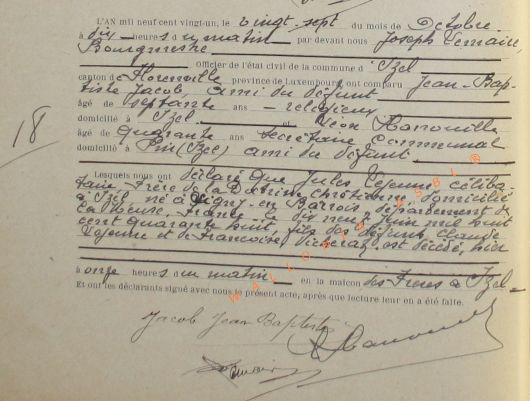 L'AN mil neuf cent vingt-un, le vingt-sept du mois de Octobre
à dix heures du matin par devant nous Joseph Lemaire
Bourgmestre
officier de l'état civil de la commune d'Izel
canton de Florenville province de Luxembourg, ont comparu Jean-Bap-
tiste Jacob, ami du défunt
âgé de septante ans religieux
domicilié à Izel et Léon
âgé de quarante ans secrétaire communal
domicilié à Pin (Izel) ami du défunt
18
Lesquels nous ont déclaré que Jules Lejeune céliba-
taire, Frère de la Doctrine Chrétienne, domicilié
à Izel, né à Ligny en Barrois, département de
la Meuse, France, le dix neuf Juin mil huit
cent quarante huit, fils des défunts Claude
Lejeune et de Françoise est décédé, hier
à onze heures du matin en la maison des Frères à Izel
Et ont les déclarants signé avec nous le présent acte, après que lecture leur en a été faite.
Jacob Jean Baptiste